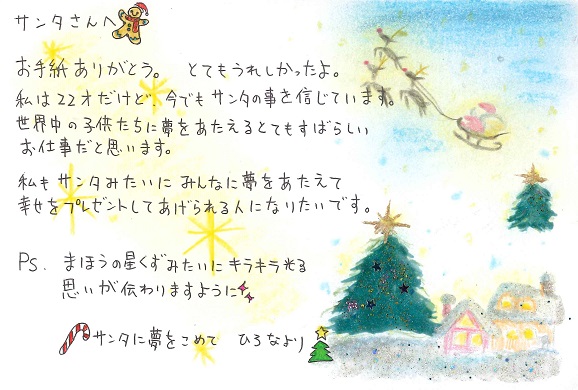 サンタさんへ
お手紙ありがとう。 とてもうれしかったよ。
私は22才だけど、今でもサンタの事を信じています。
世界中の子供たちに夢をあたえるとてもすばらしい
お仕事だと思います。
私もサンタみたいにみんなに夢をあたえて
幸せをプレゼントしてあげられる人になりたいです。
Ps. まほうの星くずみたいにキラキラ光る
思いが伝わりますように
サンタに夢をこめて ひろなより